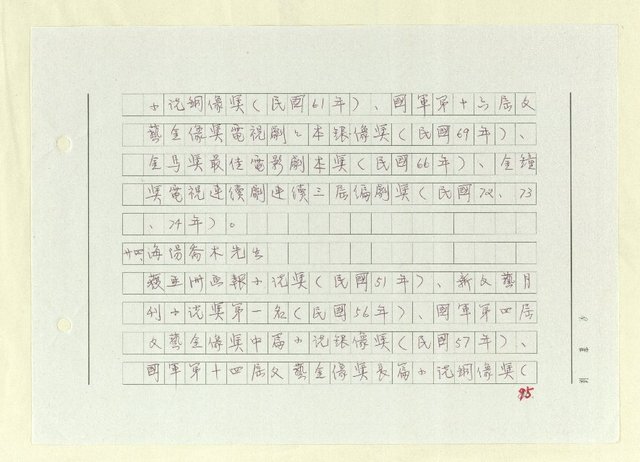 小說銅像獎(民國61年)、國軍第十六屆文
藝金像獎電視劇之本銀像獎(民國69年)、
金馬獎最佳電影劇本獎(民國66年)、金鐘
獎電視連續劇連續三屆編劇獎(民國72、73
、74年)。
廿四、海揚喬木先生
獲亞洲画報小說獎(民國51年)、新文藝月
刊小說獎第一名(民國56年)、國軍第四屆
文藝金像獎中篇小說銀像獎(民國57年)、
國軍第十四屆文藝金像獎長篇小說銅像獎(
95